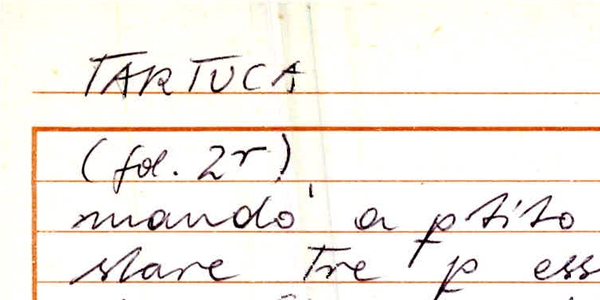 TARTUCA
(fol. 2r)
mandò a ptito
stare Tre p ess